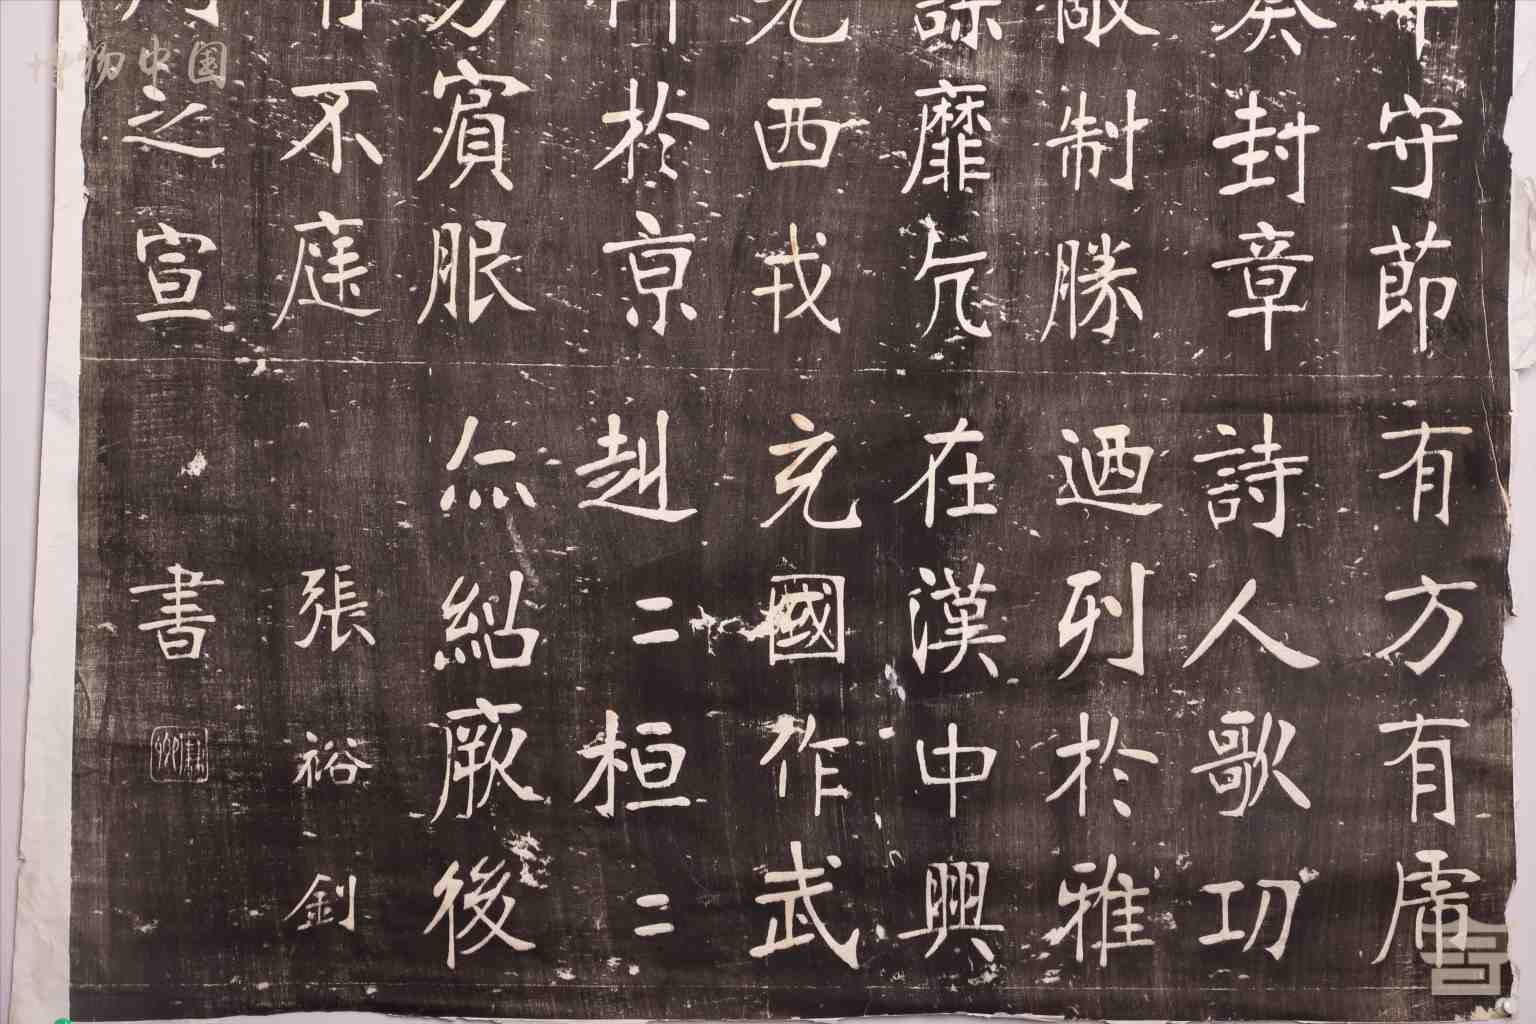 平守節
奏封章
敵制勝
謀靡亢
克西戎
師於京
方賓服
有不庭
周之宣
有方有虎
詩人歌功
迺列於雅
在漢中興
充國作武
赳二桓二
亦紹厥後
張裕釗
書
博物中国